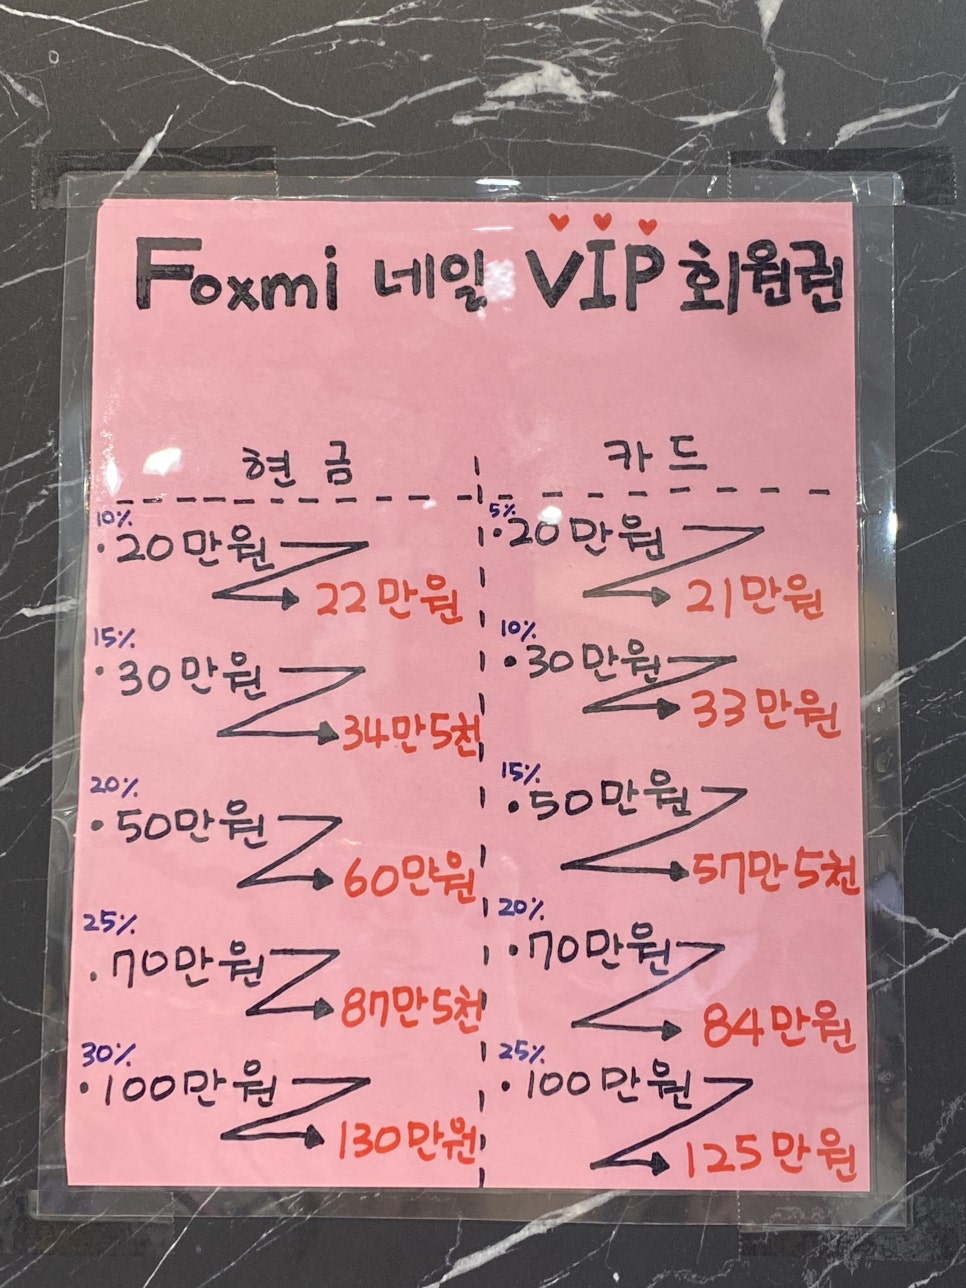 Foxmi 네일 VIP 회원권
현금
10%
·20만원
22만원
15%
·30만원
34만5천
20%
·50만원
60만원
25%
·70만원
87만5천
30%
·100만원
130만원
카드
5%
·20만원
21만원
10%
·30만원
33만원
15%
·50만원
57만5천
20%
·70만원
84만원
25%
·100만원
125만원